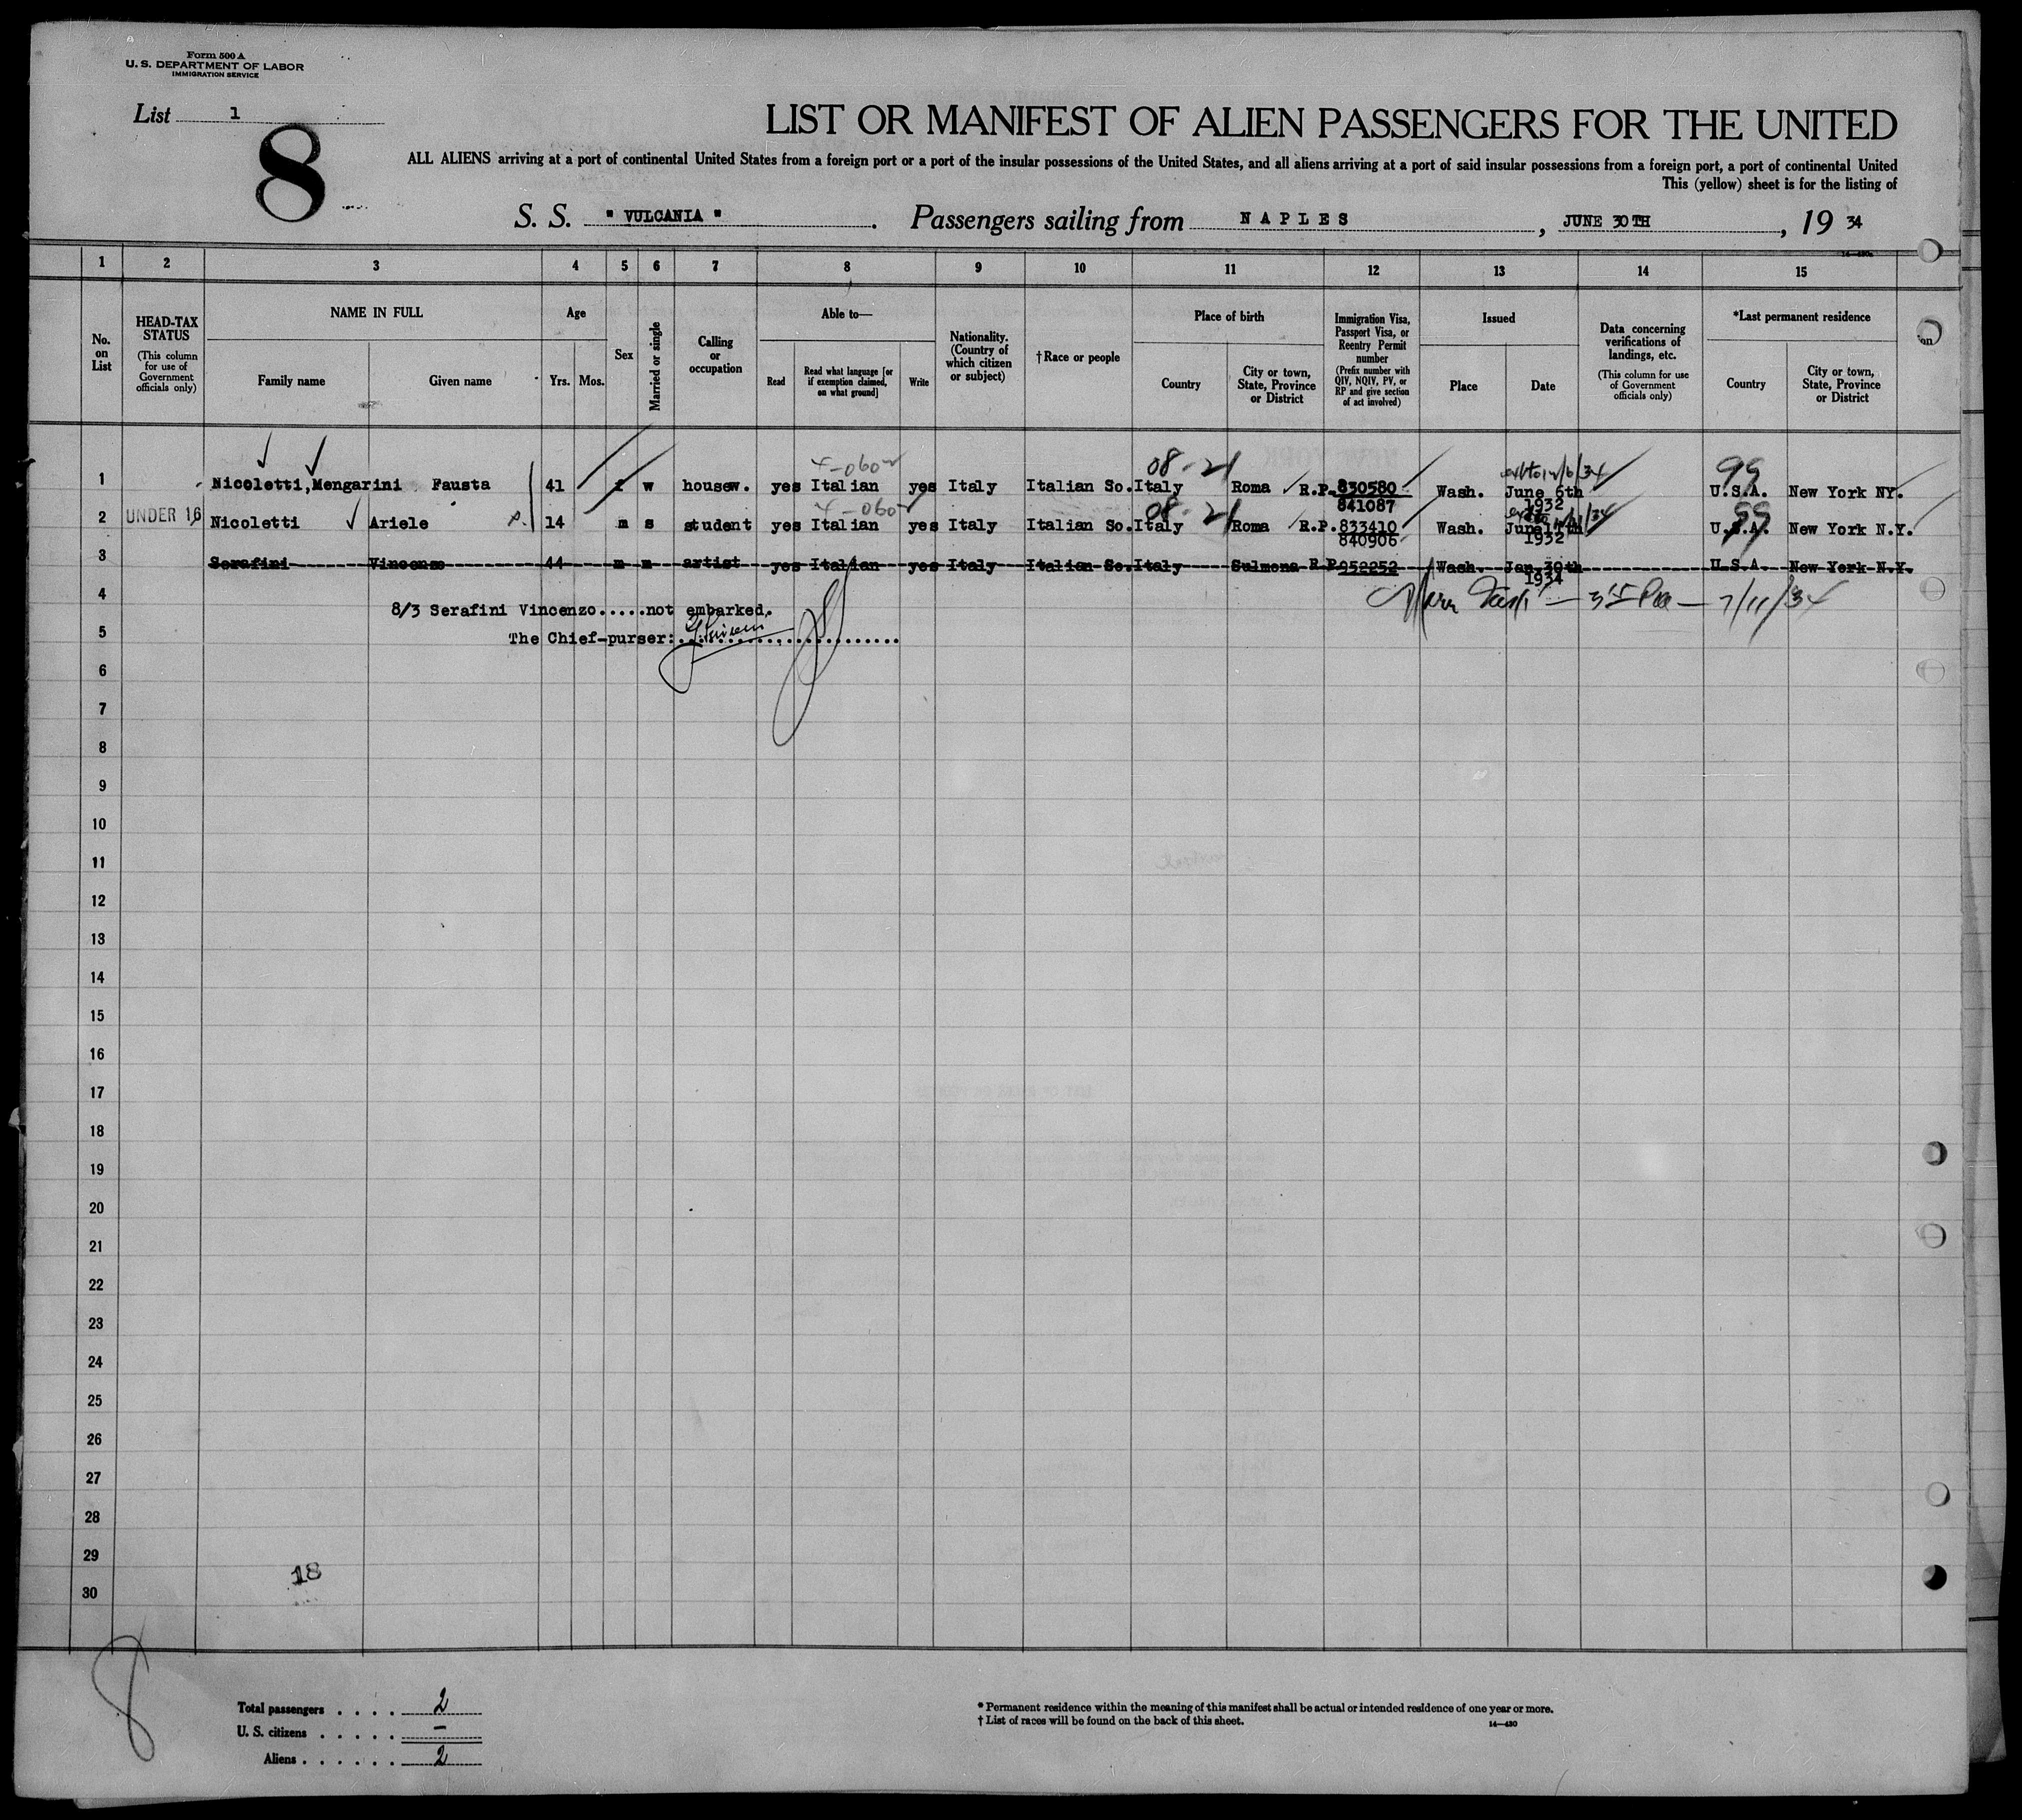 Form 500 A
U. S. DEPARTMENT OF LABOR
IMMIGRATION SERVICE
List 1
8
LIST OR MANIFEST OF ALIEN PASSENGERS FOR THE UNITED
ALL ALIENS arriving at a port of continental United States from a foreign port or a port of the insular possessions of the United States, and all aliens arriving at a port of said insular possessions from a foreign port, a port of continental United
This (yellow) sheet is for the listing of
S. S. " VULCANIA ". Passengers sailing from NAPLES, JUNE 30TH, 19 34
1 2 3 4 5 6 7 8 9 10 11 12 13 14 15
No. on List
HEAD-TAX STATUS
(This column for use of Government officials only)
NAME IN FULL
Family name Given name
Age
Yrs. Mos.
Sex
Married or single
Calling or occupation
Able to—
Read Read what language [or if exemption claimed, on what ground] Write
Nationality. (Country of which citizen or subject)
†Race or people
Place of birth
Country City or town, State, Province or District
Immigration Visa, Passport Visa, or Reentry Permit number
(Prefix number with QIV, NQIV, PV, or RP and give section of act involved)
Issued
Place Date
Data concerning verifications of landings, etc.
(This column for use of Government officials only)
*Last permanent residence
Country City or town, State, Province or District
4-060 08-21 99
1 Nicoletti,Mengarini Fausta 41 f w housew. yes Italian yes Italy Italian So. Italy Roma R.P. 830580 Wash. June 6th U.S.A. New York NY.
841087 1932
4-060 08-21 99
2 UNDER 16 Nicoletti Ariele 14 m s student yes Italian yes Italy Italian So. Italy Roma R.P. 833410 Wash. June 17th U.S.A. New York N.Y.
840906 1932
3 Serafini Vincenzo 44 m m artist yes Italian yes Italy Italian So. Italy Sulmona R.P. 952252 Wash. Jan.30th U.S.A. New York N.Y.
1934
4 8/3 Serafini Vincenzo.....not embarked. 7/11/34
5 The Chief-purser:
6
7
8
9
10
11
12
13
14
15
16
17
18
19
20
21
22
23
24
25
26
27
28
29
30
18
8
Total passengers . . . . 2
U. S. citizens . . . . . —
Aliens . . . . . . 2
* Permanent residence within the meaning of this manifest shall be actual or intended residence of one year or more.
† List of races will be found on the back of this sheet. 14—430